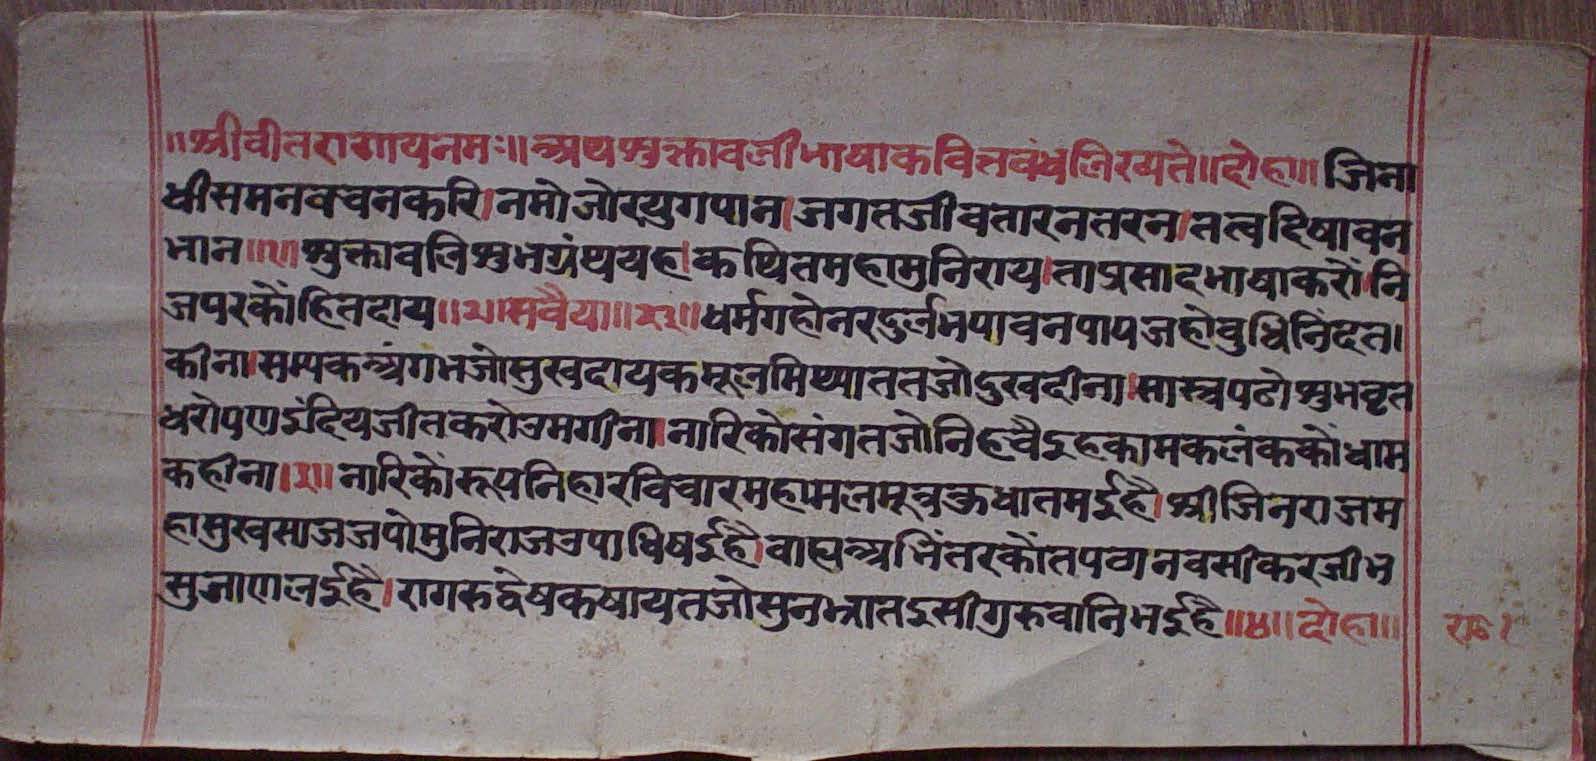 ॥श्रीवीतरागायनमः॥अथश्रुक्तावलीभाषाकवित्तवंधलिख्यते॥दोहा॥जिना
धीसमनवचनकरि।नमोजोरयुगपान।जगतजीवतारनतरन।तत्वदिषावन
भान॥१॥श्रुक्तावलिशुभग्रंथयह।कथितमहामुनिराय।ताप्रसादभाषाकरों।नि
जपरकौंहितदाय॥२॥सवैया॥२३॥धर्मगहोनरदुर्लभपावनपापजहोवुधिनिंदत।
कीना।सम्यकअंगभजोसुखदायकमूलमिथ्याततजोदुखदीना।सास्त्रपढोशुभवृत
धरोपणइंदियजीतकरोउमगीना।नारिकोसंगतजोनिहचैइहकामकलंककौंधाम
कहीना।३॥नारिकौंरूपनिहारविचारमहामलमूत्रकुधातमईहै।श्रीजिनराजम
हासुखसाजजपोमुनिराजउपाधिषईहै।वाह्यअभिंतरकौंतपठानवसीकरजीभ
सुजाणलईहै।रागरुद्वेषकषायतजोसुनभ्रातइसीगुरुवानिभईहै॥४॥दोहा॥